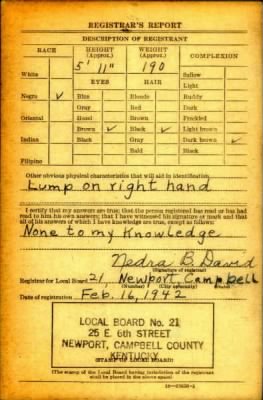 REGISTRAR'S REPORT
DESCRIPTION OF REGISTRANT
RACE HEIGHT (Approx.) WEIGHT (Approx.) COMPLEXION
5' 11" 190
White Sallow
EYES HAIR Light
Negro ✓ Blue Blonde Ruddy
Gray Red Dark
Oriental Hazel Brown Freckled
Brown ✓ Black ✓ Light brown
Indian Black Gray Dark brown ✓
Bald Black
Filipino
Other obvious physical characteristics that will aid in identification
Lump on right hand
I certify that my answers are true; that the person registered has read or has had
read to him his own answers; that I have witnessed his signature or mark and that
all of his answers of which I have knowledge are true, except as follows:
None to my Knowledge
Nedra B. David
(Signature of registrar)
Registrar for Local Board 21, Newport, Campbell
(Number) (City or county)
Date of registration Feb. 16, 1942
LOCAL BOARD No. 21
25 E. 6th STREET
NEWPORT, CAMPBELL COUNTY
KENTUCKY
(STAMP OF LOCAL BOARD)
(The stamp of the Local Board having jurisdiction of the registrant
shall be placed in the above space)